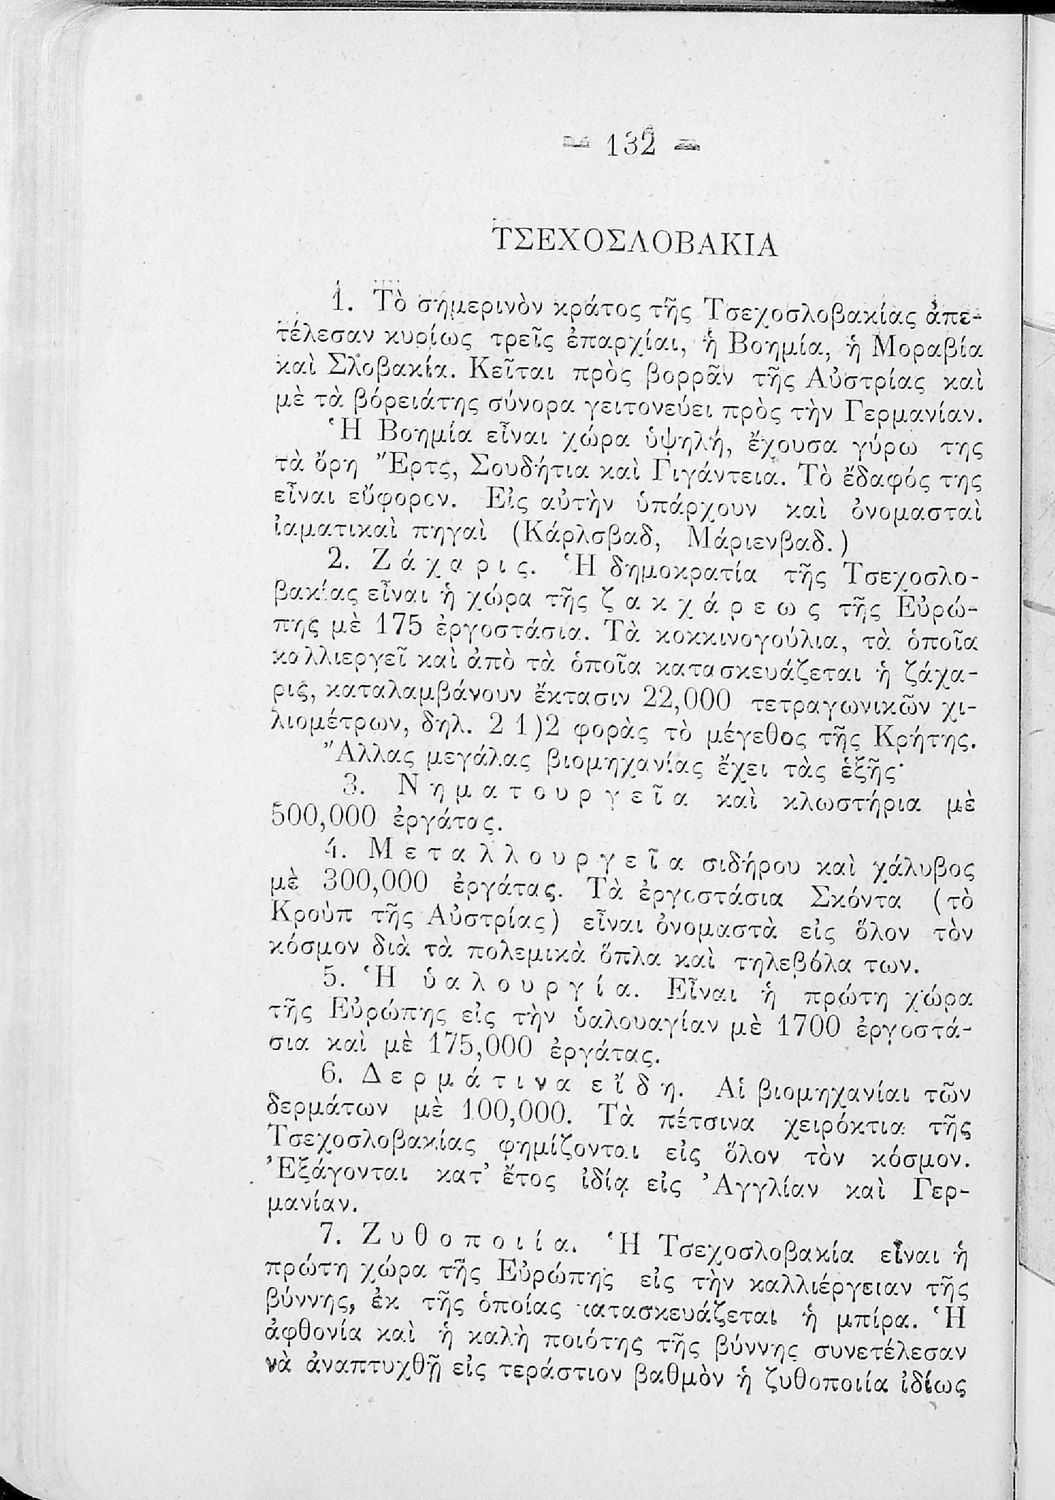 — 132 —
ΤΣΕΧΟΣΛΟΒΑΚΙΑ
1. Τὸ σημερινὸν κράτος τῆς Τσεχοσλοβακίας ἀπε-
τέλεσαν κυρίως τρεῖς ἐπαρχίαι, ἡ Βοημία, ἡ Μοραβία
καὶ Σλοβακία. Κεῖται πρὸς βορρᾶν τῆς Αὐστρίας καὶ
μὲ τὰ βόρειάτης σύνορα γειτονεύει πρὸς τὴν Γερμανίαν.
Ἡ Βοημία εἶναι χώρα ὑψηλή, ἔχουσα γύρω της
τὰ ὄρη Ἔρτς, Σουδήτια καὶ Γιγάντεια. Τὸ ἔδαφός της
εἶναι εὔφορον. Εἰς αὐτὴν ὑπάρχουν καὶ ὀνομασταὶ
ἰαματικαὶ πηγαὶ (Κάρλσβαδ, Μάριενβαδ.)
2. Ζάχαρις. Ἡ δημοκρατία τῆς Τσεχοσλο-
βακίας εἶναι ἡ χώρα τῆς ζακχάρεως τῆς Εὐρώ-
πης μὲ 175 ἐργοστάσια. Τὰ κοκκινογούλια, τὰ ὁποῖα
καλλιεργεῖ καὶ ἀπὸ τὰ ὁποῖα κατασκευάζεται ἡ ζάχα-
ρις, καταλαμβάνουν ἔκτασιν 22,000 τετραγωνικῶν χι-
λιομέτρων, δηλ. 2 1)2 φορὰς τὸ μέγεθος τῆς Κρήτης.
Ἄλλας μεγάλας βιομηχανίας ἔχει τὰς ἑξῆς·
3. Νηματουργεῖα καὶ κλωστήρια μὲ
500,000 ἐργάτας.
4. Μεταλλουργεῖα σιδήρου καὶ χάλυβος
μὲ 300,000 ἐργάτας. Τὰ ἐργοστάσια Σκόντα (τὸ
Κροὺπ τῆς Αὐστρίας) εἶναι ὀνομαστὰ εἰς ὅλον τὸν
κόσμον διὰ τὰ πολεμικὰ ὅπλα καὶ τηλεβόλα των.
5. Ἡ ὑαλουργία. Εἶναι ἡ πρώτη χώρα
τῆς Εὐρώπης εἰς τὴν ὑαλουαγίαν μὲ 1700 ἐργοστά-
σια καὶ μὲ 175,000 ἐργάτας.
6. Δερμάτινα εἴδη. Αἱ βιομηχανίαι τῶν
δερμάτων μὲ 100,000. Τὰ πέτσινα χειρόκτια τῆς
Τσεχοσλοβακίας φημίζονται εἰς ὅλον τὸν κόσμον.
Ἐξάγονται κατ' ἔτος ἰδίᾳ εἰς Ἀγγλίαν καὶ Γερ-
μανίαν.
7. Ζυθοποιία. Ἡ Τσεχοσλοβακία εἶναι ἡ
πρώτη χώρα τῆς Εὐρώπης εἰς τὴν καλλιέργειαν τῆς
βύννης, ἐκ τῆς ὁποίας κατασκευάζεται ἡ μπίρα. Ἡ
ἀφθονία καὶ ἡ καλὴ ποιότης τῆς βύννης συνετέλεσαν
νὰ ἀναπτυχθῇ εἰς τεράστιον βαθμὸν ἡ ζυθοποιία ἰδίως